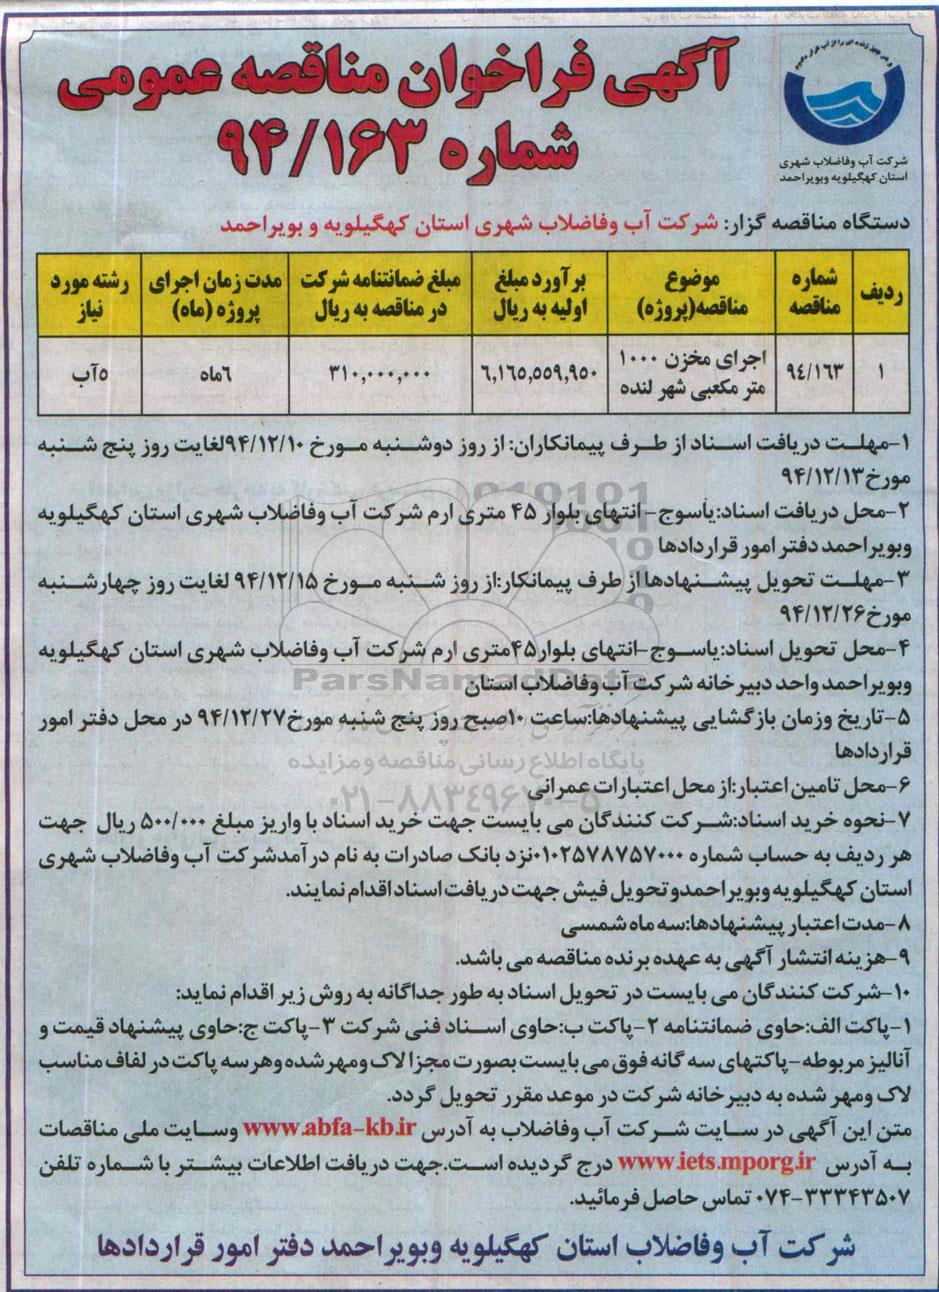 آگهی فراخوان مناقصه عمومی
شماره ۹۴/۱۶۳
شرکت آب وفاضلاب شهری
استان کهگیلویه وبویراحمد
دستگاه مناقصه گزار: شرکت آب وفاضلاب شهری استان کهگیلویه و بویراحمد
ردیف
شماره مناقصه
موضوع مناقصه(پروژه)
برآورد مبلغ اولیه به ریال
مبلغ ضمانتنامه شرکت در مناقصه به ریال
مدت زمان اجرای پروژه (ماه)
رشته مورد نیاز
۱
۹٤/۱٦۳
اجرای مخزن ۱۰۰۰
متر مکعبی شهر لنده
٦,۱٦٥,٥٥۹,۹٥۰
۳۱۰,۰۰۰,۰۰۰
٦ماه
٥آب
۱-مهلت دریافت اسناد از طرف پیمانکاران: از روز دوشنبه مورخ ۹۴/۱۲/۱۰لغایت روز پنج شنبه
مورخ۹۴/۱۲/۱۳
۲-محل دریافت اسناد:یاسوج- انتهای بلوار ۴۵ متری ارم شرکت آب وفاضلاب شهری استان کهگیلویه
وبویراحمد دفتر امور قراردادها
۳-مهلت تحویل پیشنهادها ازطرف پیمانکار:از روز شنبه مورخ ۹۴/۱۲/۱۵ لغایت روز چهارشنبه
مورخ۹۴/۱۲/۲۶
۴-محل تحویل اسناد:یاسوج-انتهای بلوار۴۵متری ارم شرکت آب وفاضلاب شهری استان کهگیلویه
وبویراحمد واحد دبیرخانه شرکت آب وفاضلاب استان
۵-تاریخ وزمان بازگشایی پیشنهادها:ساعت ۱۰صبح روز پنج شنبه مورخ۹۴/۱۲/۲۷ در محل دفتر امور
قراردادها
۶-محل تامین اعتبار:از محل اعتبارات عمرانی
۷-نحوه خرید اسناد:شرکت کنندگان می بایست جهت خرید اسناد با واریز مبلغ ۵۰۰/۰۰۰ ریال جهت
هر ردیف به حساب شماره ۰۱۰۲۵۷۸۷۵۷۰۰۰نزد بانک صادرات به نام درآمدشرکت آب وفاضلاب شهری
استان کهگیلویه وبویراحمدو تحویل فیش جهت دریافت اسناد اقدام نمایند.
۸-مدت اعتبار پیشنهادها:سه ماه شمسی
۹-هزینه انتشار آگهی به عهده برنده مناقصه می باشد.
۱۰-شرکت کنندگان می بایست در تحویل اسناد به طور جداگانه به روش زیر اقدام نماید:
۱-پاکت الف:حاوی ضمانتنامه ۲-پاکت ب:حاوی اسناد فنی شرکت ۳-پاکت ج:حاوی پیشنهاد قیمت و
آنالیز مربوطه-پاکتهای سه گانه فوق می بایست بصورت مجزا لاک ومهر شده وهر سه پاکت در لفاف مناسب
لاک ومهر شده به دبیرخانه شرکت در موعد مقرر تحویل گردد.
متن این آگهی در سایت شرکت آب وفاضلاب به آدرس www.abfa-kb.ir وسایت ملی مناقصات
به آدرس www.iets.mporg.ir درج گردیده است.جهت دریافت اطلاعات بیشتر با شماره تلفن
۰۷۴-۳۳۳۴۳۵۰۷ تماس حاصل فرمائید.
شرکت آب وفاضلاب استان کهگیلویه وبویراحمد دفتر امور قراردادها
ParsNamadData
پایگاه اطلاع رسانی مناقصه و مزایده
۰۲۱-۸۸۳۴۹۶۷۰-۵